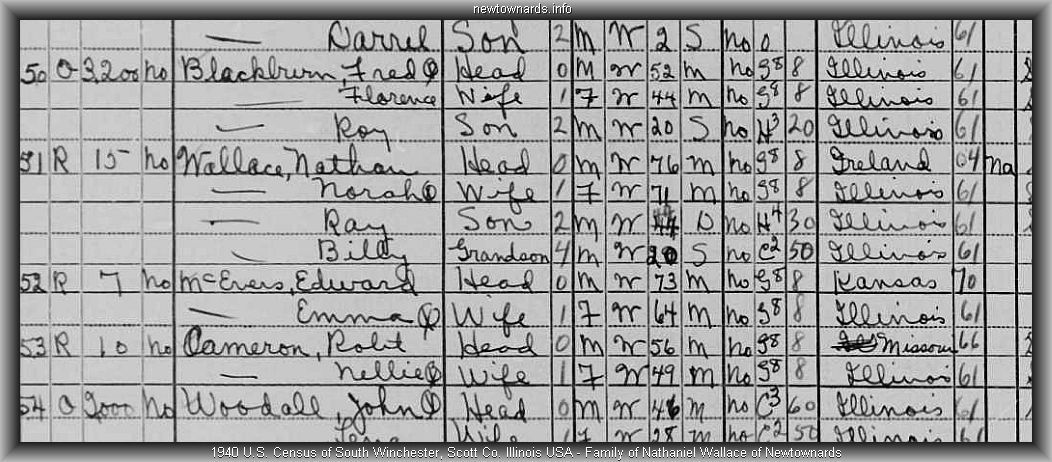 newtownards.info
— Darrel Son 2 M W 2 S no 0 Illinois 61
50 O 3,200 no Blackburn, Fred ⓧ Head 0 M W 52 M no 88 8 Illinois 61
— Florence Wife 1 F W 44 M no 88 8 Illinois 61
— Roy Son 2 M W 20 S no H3 20 Illinois 61
51 R 15 no Wallace, Nathan Head 0 M W 76 M no 88 8 Ireland 04 na
— Norah ⓧ Wife 1 F W 71 M no 88 8 Illinois 61
— Ray Son 2 M W 44 D no H4 30 Illinois 61
— Billy Grandson 4 M W 20 S no C2 50 Illinois 61
52 R 7 no McEvers, Edward Head 0 M W 73 M no 88 8 Kansas 70
— Emma ⓧ Wife 1 F W 64 M no 88 8 Illinois 61
53 R 10 no Cameron, Robt Head 0 M W 56 M no 88 8 Missouri 66
— Nellie ⓧ Wife 1 F W 49 M no 88 8 Illinois 61
54 O 2000 no Woodall, John ⓧ Head 0 M W 46 M no C3 60 Illinois 61
Wife 1 F W 28 M no C2 50 Illinois 61
1940 U.S. Census of South Winchester, Scott Co. Illinois USA - Family of Nathaniel Wallace of Newtownards